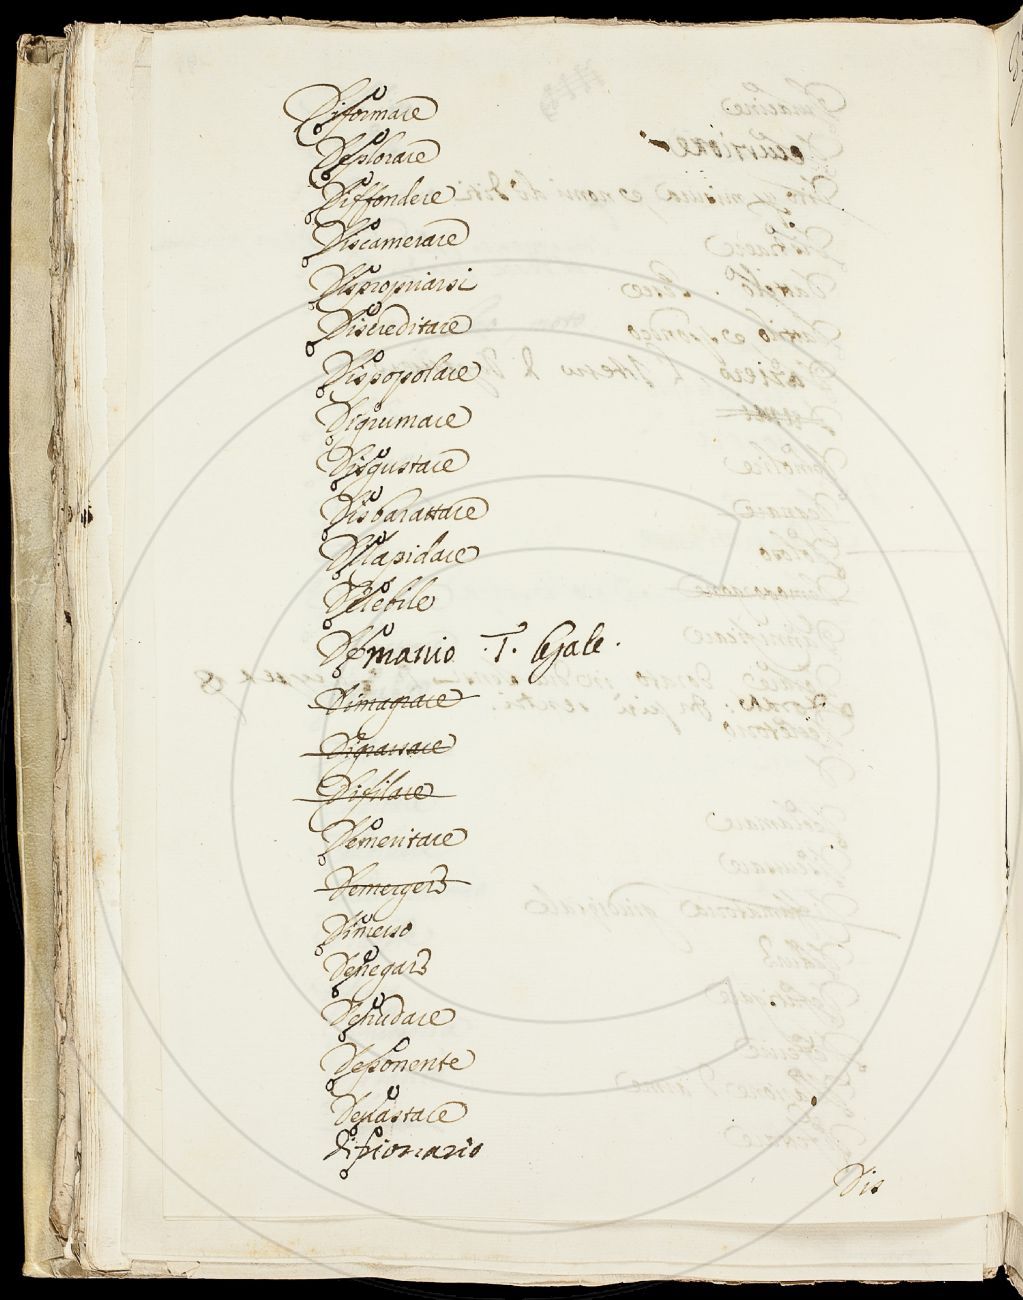 Diformare
Deplorare
Diffondere
Discamerare
Dispropriarsi
Discreditare
Dispopolare
Digrumare
Disgustare
Disbarattare
Dilapidare
Delebile
Demanio . T. legale .
Dimagrare
Digrassare
Difilare
Demeritare
Demergere
Dimerso
Denegare
Denudare
Deponente
Devastare
Dis